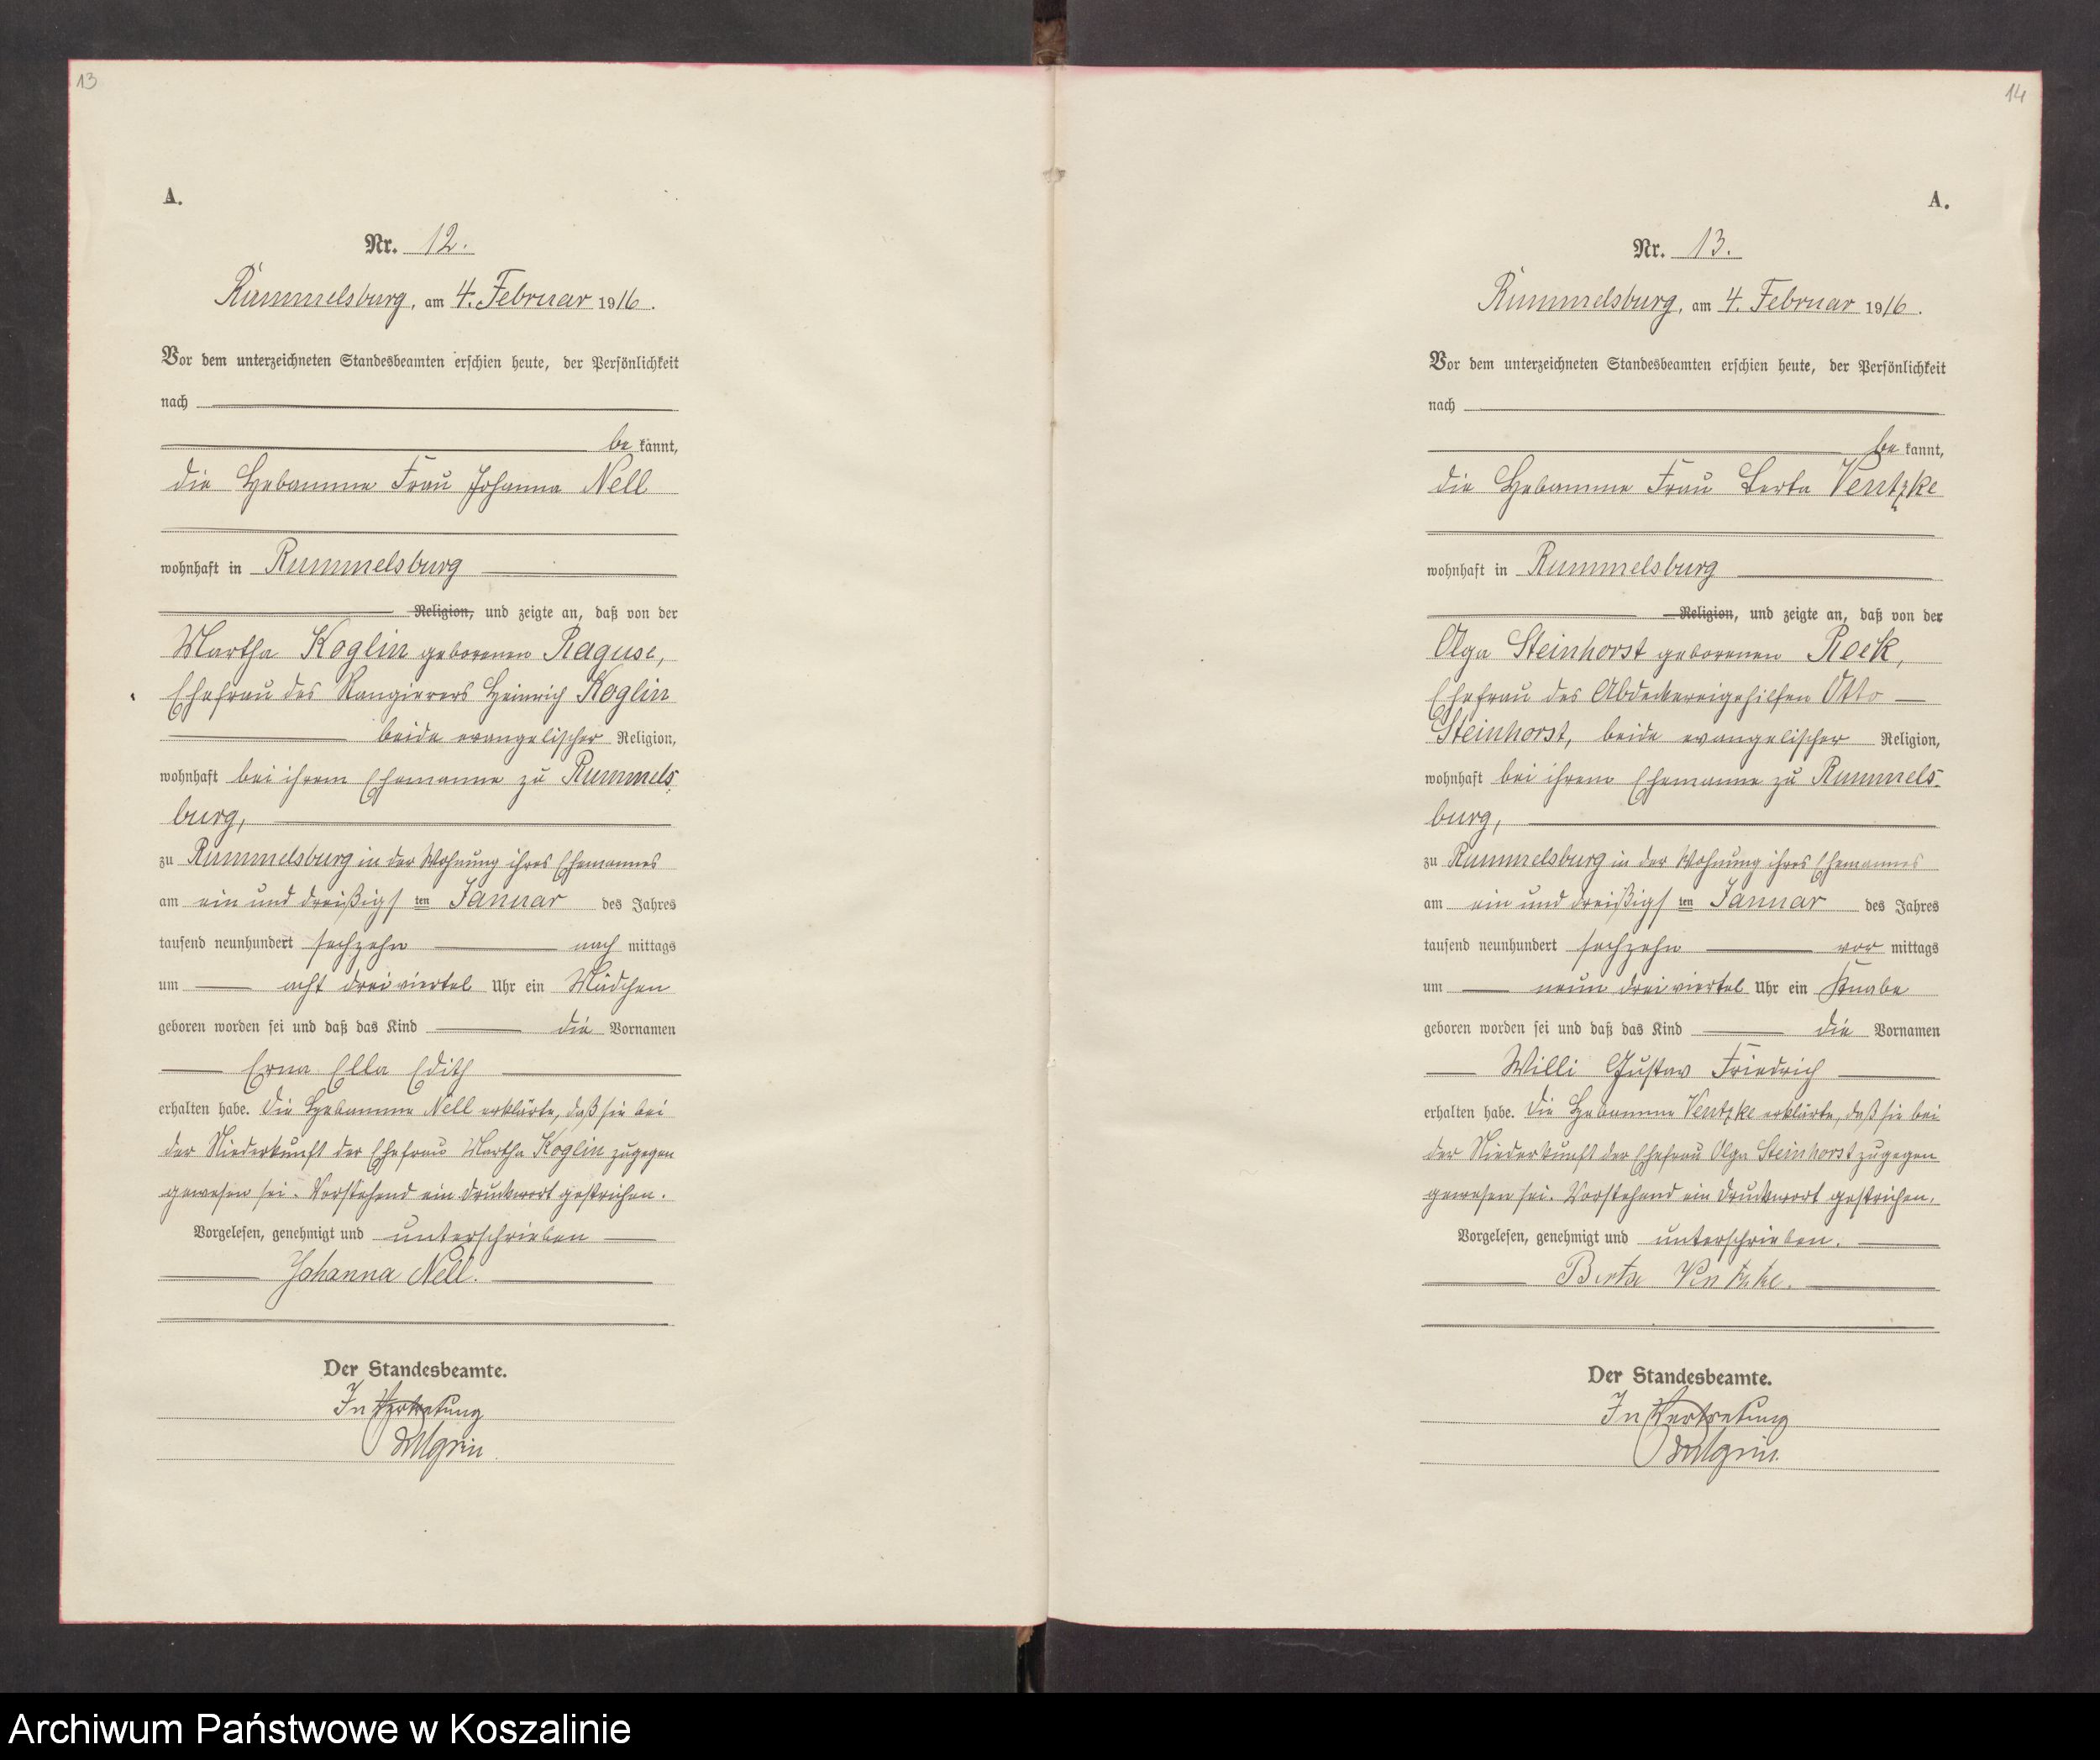 13
A.
Nr. 12.
Rummelsburg, am 4. Februar 1916.
Vor dem unterzeichneten Standesbeamten erschien heute, der Persönlichkeit
nach
be kannt,
die Hebamme Frau Johanna Nell
wohnhaft in Rummelsburg
Religion, und zeigte an, daß von der
Martha Koglin geborenen Raguse,
Ehefrau des Rangierers Heinrich Koglin
beide evangelischer Religion,
wohnhaft bei ihrem Ehemanne zu Rummels-
burg,
zu Rummelsburg in der Wohnung ihres Ehemannes
am ein und dreißigsten Januar des Jahres
tausend neunhundert sechzehn nach mittags
um acht dreiviertel Uhr ein Mädchen
geboren worden sei und daß das Kind die Vornamen
Erna Ella Edith
erhalten habe. Die Hebamme Nell erklärte, daß sie bei
der Niederkunft der Ehefrau Martha Koglin zugegen
gewesen sei. Vorstehend ein Druckwort gestrichen.
Vorgelesen, genehmigt und unterschrieben
Johanna Nell.
Der Standesbeamte.
In Vertretung
14
A.
Nr. 13.
Rummelsburg, am 4. Februar 1916.
Vor dem unterzeichneten Standesbeamten erschien heute, der Persönlichkeit
nach
be kannt,
die Hebamme Frau Berta Ventzke
wohnhaft in Rummelsburg
Religion, und zeigte an, daß von der
Olga Steinhorst geborenen Roek,
Ehefrau des Abdeckereigehilfen Otto
Steinhorst, beide evangelischer Religion,
wohnhaft bei ihrem Ehemanne zu Rummels-
burg,
zu Rummelsburg in der Wohnung ihres Ehemannes
am ein und dreißigsten Januar des Jahres
tausend neunhundert sechzehn vor mittags
um neun dreiviertel Uhr ein Knabe
geboren worden sei und daß das Kind die Vornamen
Willi Gustav Friedrich
erhalten habe. Die Hebamme Ventzke erklärte, daß sie bei
der Niederkunft der Ehefrau Olga Steinhorst zugegen
gewesen sei. Vorstehend ein Druckwort gestrichen.
Vorgelesen, genehmigt und unterschrieben.
Berta Ventzke.
Der Standesbeamte.
In Vertretung
Archiwum Państwowe w Koszalinie